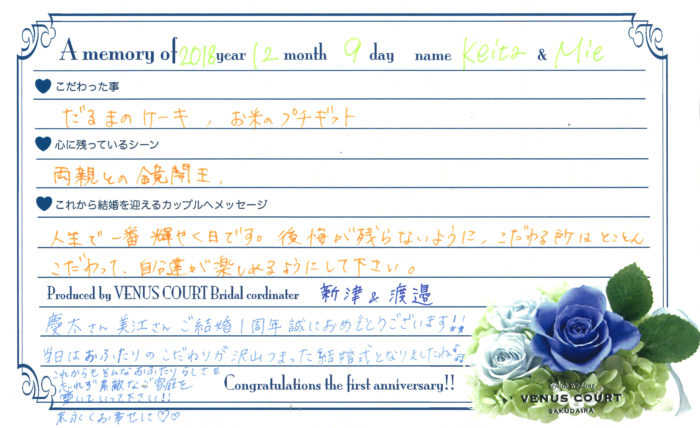 A memory of 2018 year 12 month 9 day name Keita & Mie
こだわった事
だるまのケーキ、お米のプチギフト
心に残っているシーン
両親との鏡開き。
これから結婚を迎えるカップルへメッセージ
人生で一番輝やく日です。後悔が残らないように、こだわる所はとことん
こだわって、自分達が楽しめるようにして下さい。
Produced by VENUS COURT Bridal cordinater 新津 & 渡邉
慶太さん 美江さん ご結婚1周年誠におめでとうございます!!
当日はおふたりのこだわりが沢山つまった結婚式となりましたね♪
これからもそんなおふたりらしさを
忘れず素敵なご家庭を
築いていって下さい!!
末永くお幸せに♡♡
Congratulations the first anniversary!!
VENUS COURT
SAKUDAIRA